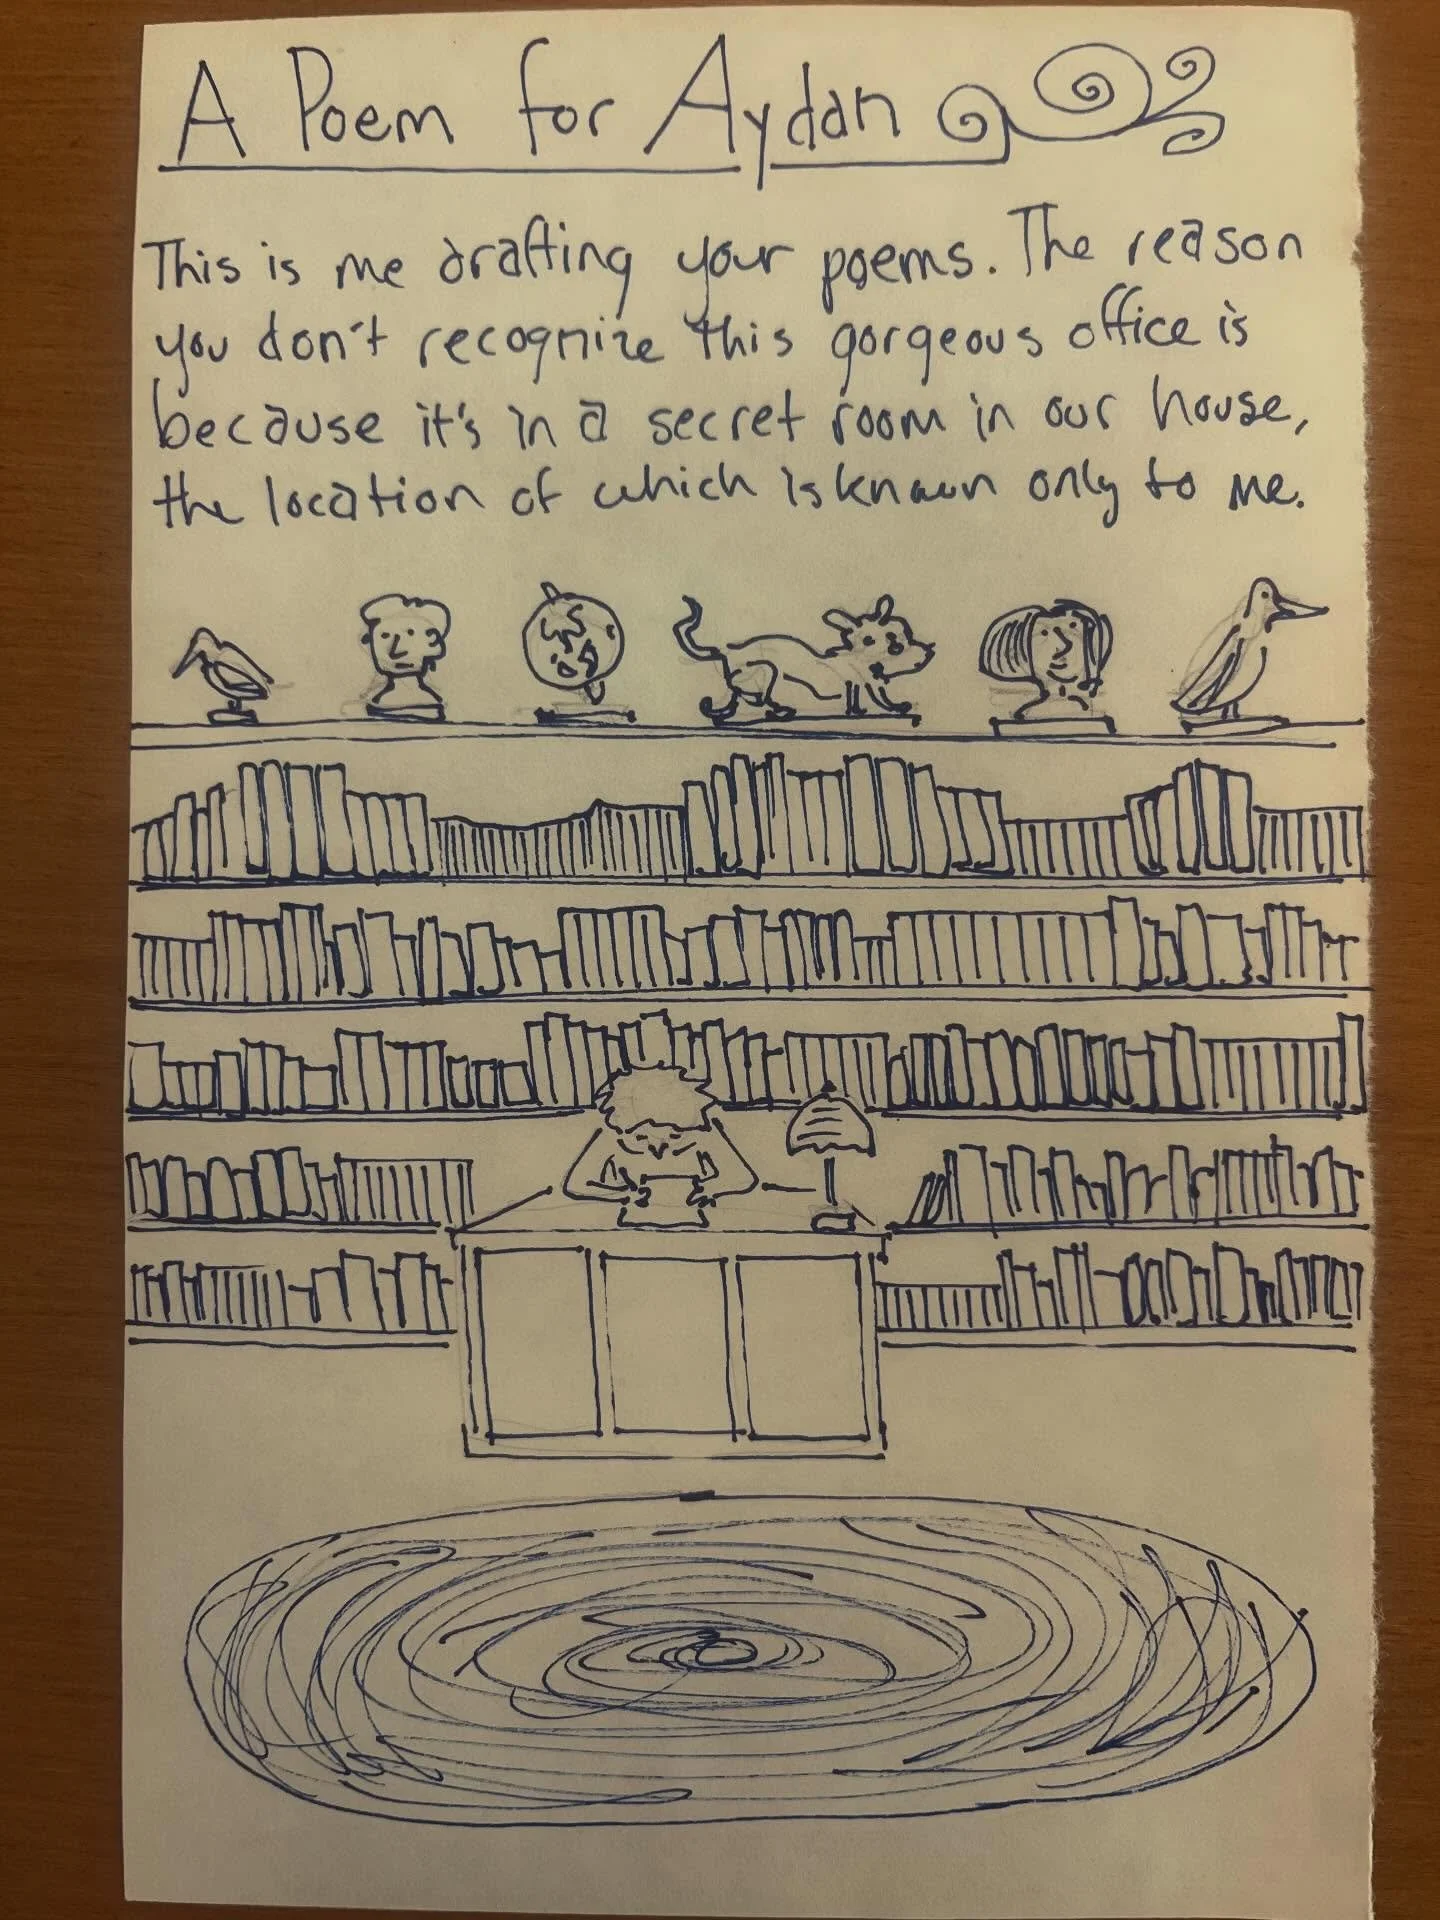 A Poem for Aydan
This is me drafting your poems. The reason
you don't recognize this gorgeous office is
because it's in a secret room in our house,
the location of which is known only to me.